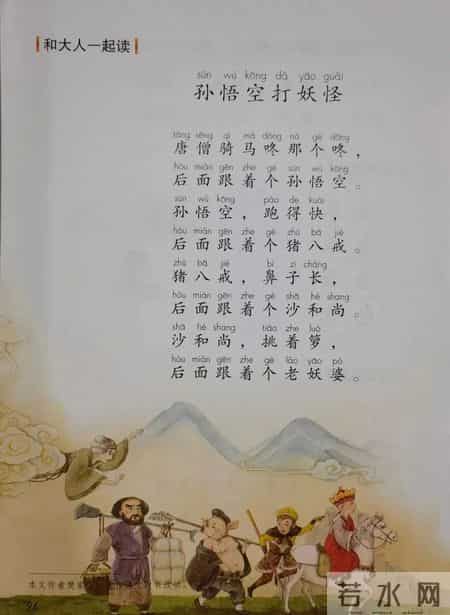 和大人一起读
sūn wù kōng dǎ yāo guài
孙悟空打妖怪
táng sēng qí mǎ dōng nà gè dōng
唐僧骑马咚那个咚，
hòu miàn gēn zhe gè sūn wù kōng
后面跟着个孙悟空。
sūn wù kōng pǎo de kuài
孙悟空，跑得快，
hòu miàn gēn zhe gè zhū bā jiè
后面跟着个猪八戒。
zhū bā jiè bí zi cháng
猪八戒，鼻子长，
hòu miàn gēn zhe gè shā hé shang
后面跟着个沙和尚。
shā hé shang tiāo zhe luó
沙和尚，挑着箩，
hòu miàn gēn zhe gè lǎo yāo pó
后面跟着个老妖婆。
本文作者樊家
若水网